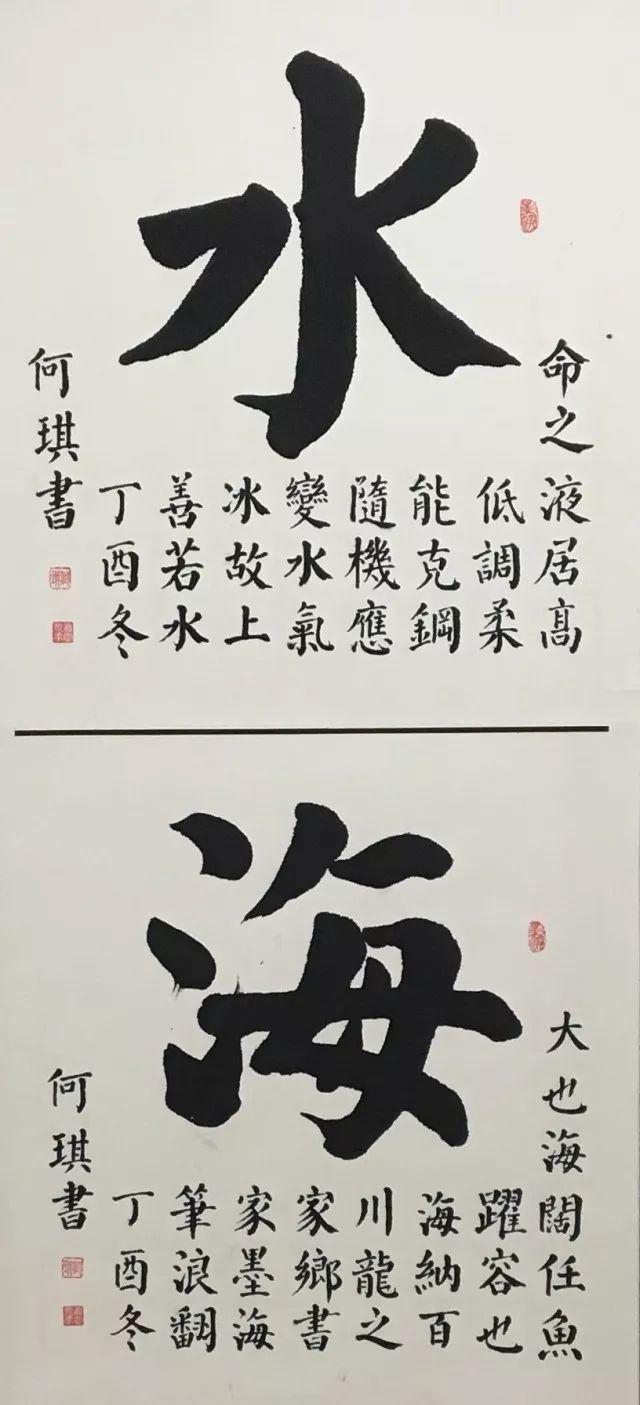 水
命之液居高
低調柔
能克鋼
隨機應
變水氣
冰故上
善若水
丁酉冬
何琪書
海
大也海闊任魚
躍容也
海納百
川龍之
家鄉書
家墨海
筆浪翻
丁酉冬
何琪書